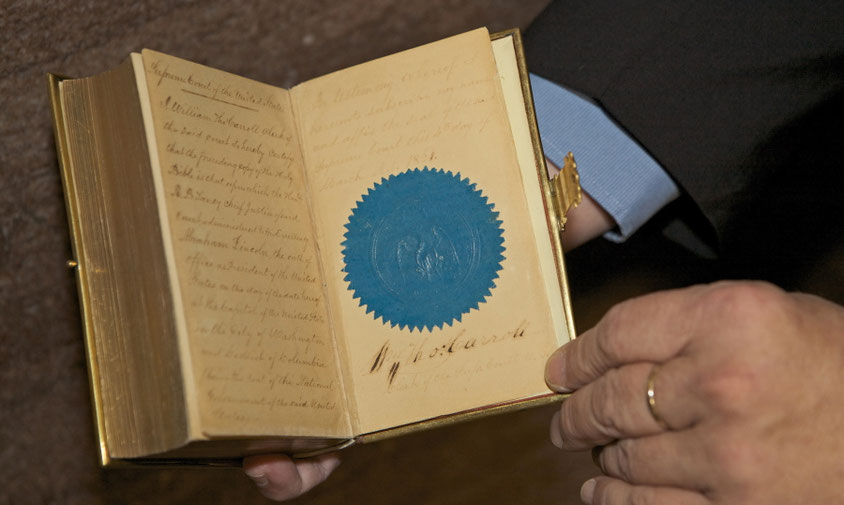 Supreme Court of the United States
I William Thos Carroll Clerk of
the said court do hereby certify
that the preceding copy of the Holy
Bible is that upon which the Honble
R. B. Taney Chief Justice of said
Court administered to His Excellency
Abraham Lincoln, the oath of
office as President of the United
States on the day of the date hereof
at the Capitol of the United States
in the City of Washington
and District of Columbia
being the seat of the National
Government of the said United
States
In testimony whereof I
hereunto subscribe my name
and affix the seal of said
Supreme Court this 4th day of
March 1861.
Wm Thos: Carroll
Clerk of the Sup. Court